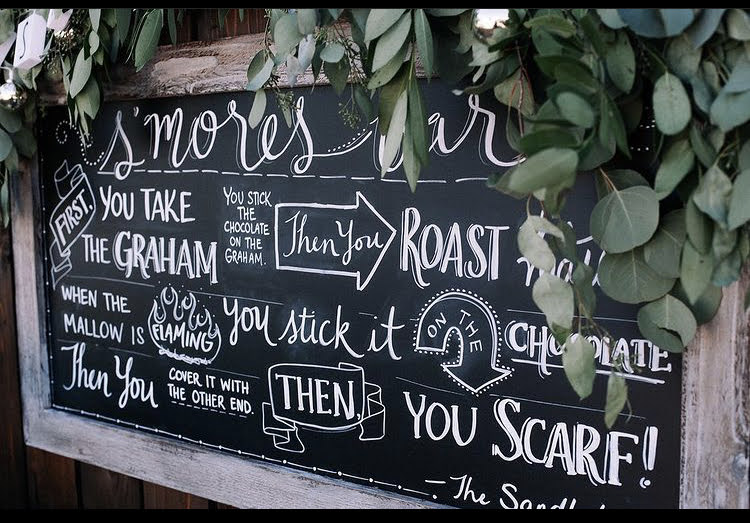 s'mores bar
FIRST, YOU TAKE THE GRAHAM
YOU STICK THE CHOCOLATE ON THE GRAHAM.
Then You ROAST
WHEN THE MALLOW IS FLAMING You stick it ON THE CHOCOLATE
Then You COVER IT WITH THE OTHER END.
THEN, YOU SCARF!
- The